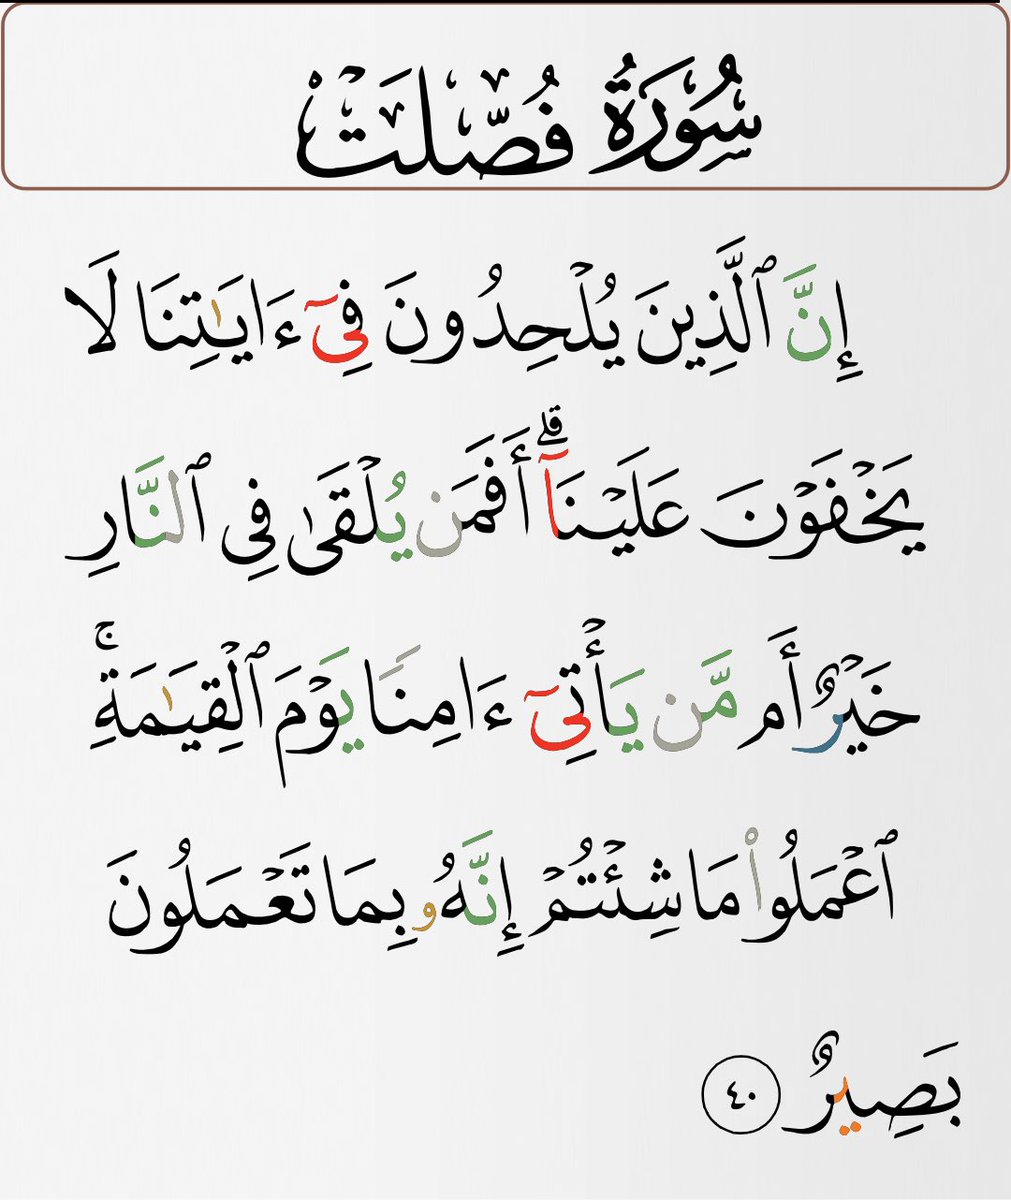 سُورَةُ فُصِّلَتْ
إِنَّ ٱلَّذِينَ يُلْحِدُونَ فِىٓ ءَايَـٰتِنَا لَا
يَخْفَوْنَ عَلَيْنَآ ۗ أَفَمَن يُلْقَىٰ فِى ٱلنَّارِ
خَيْرٌ أَم مَّن يَأْتِىٓ ءَامِنًا يَوْمَ ٱلْقِيَـٰمَةِ ۚ
ٱعْمَلُوا۟ مَا شِئْتُمْ إِنَّهُۥ بِمَا تَعْمَلُونَ
بَصِيرٌ ٤٠